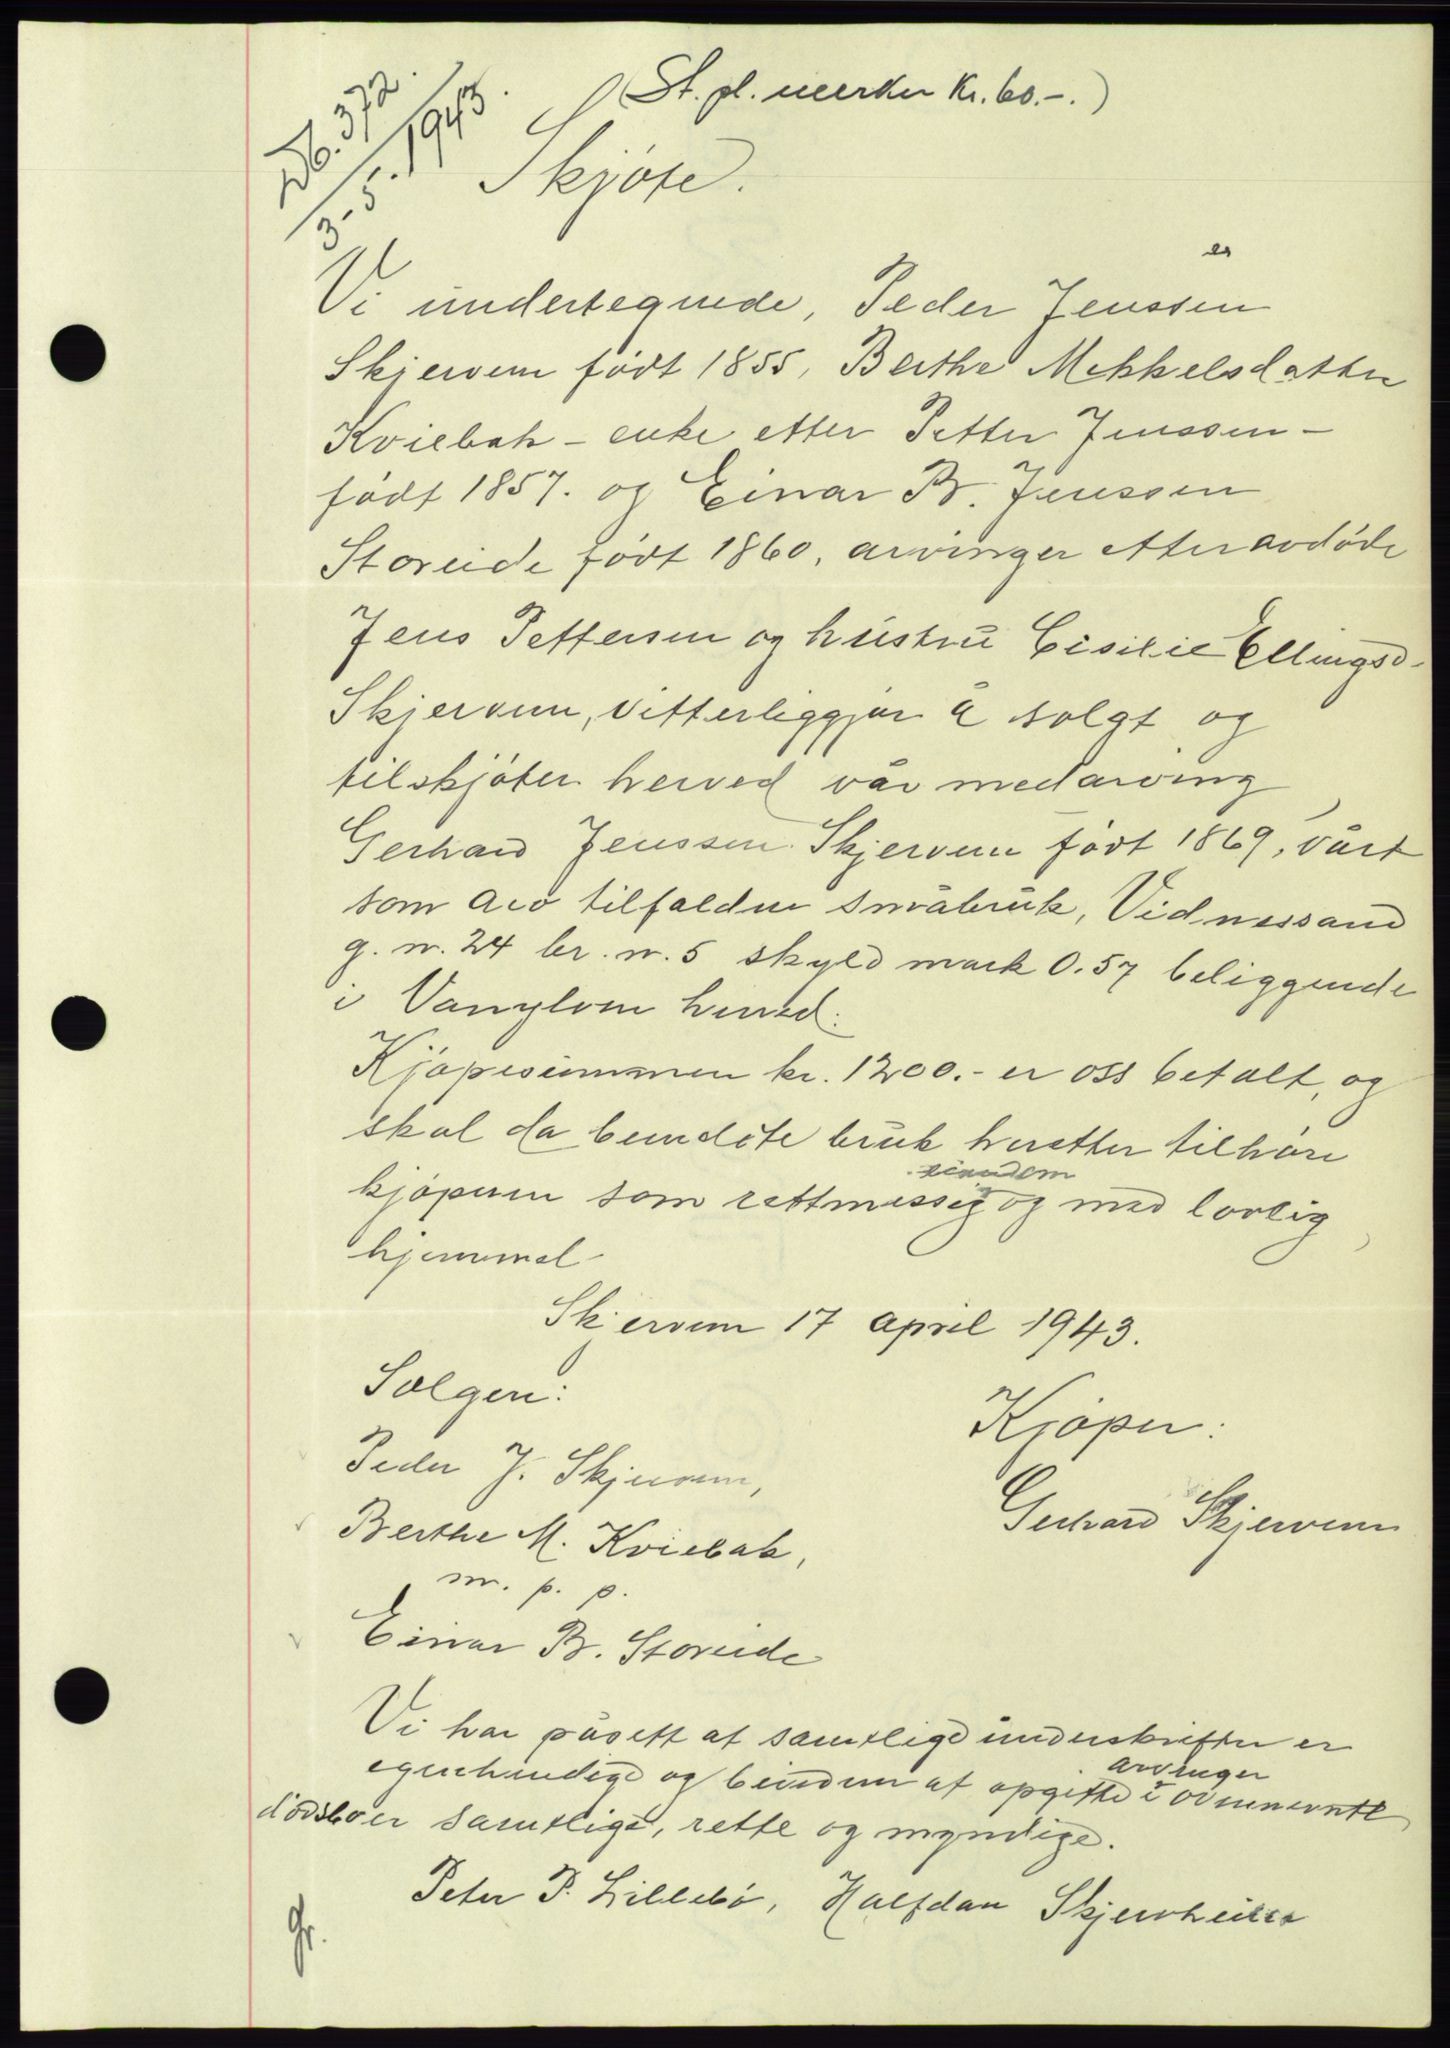 (St. pl. merker Kr. 60.-.)
Db. 372.
3-5-1943.
Skjøte.
Vi undertegnede, Peder Jenssen
Skjervem født 1855, Berthe Mekkelsdatter
Kviebak - enke etter Petter Jenssen -
født 1857. og Einar B. Jenssen
Storeide født 1860, arvinger etter avdøde
Jens Pettersen og hustru Cisilie Ellingsd.
Skjervem, vitterliggjør å solgt og
tilskjøter herved vår medarving
Gerhard Jenssen Skjervem født 1869, vårt
som arv tilfaldne småbruk, Vidnessand
g. nr. 24 br. nr. 5 skyld mark 0.57 beliggende
i Vanylven herred.
Kjøpesummen kr. 1200.- er oss betalt, og
skal da bemeldte bruk heretter tilhøre
eiendom
kjøperen som rettmessig og med lovlig
hjemmel
Skjervem 17 april 1943.
Sælgere:
Kjøper:
Peder J. Skjervem,
Gerhard Skjervem
Berthe M. Kviebak,
m. p. p.
Einar B. Storeide
Vi har påsett at samtlige underskrifter er
egenhendige og at opgitte arvinger i ovennevnte
dødsbo er samtlige, rette og myndige.
Peter P. Lillebø, Halfdan Skjervheim
gr.